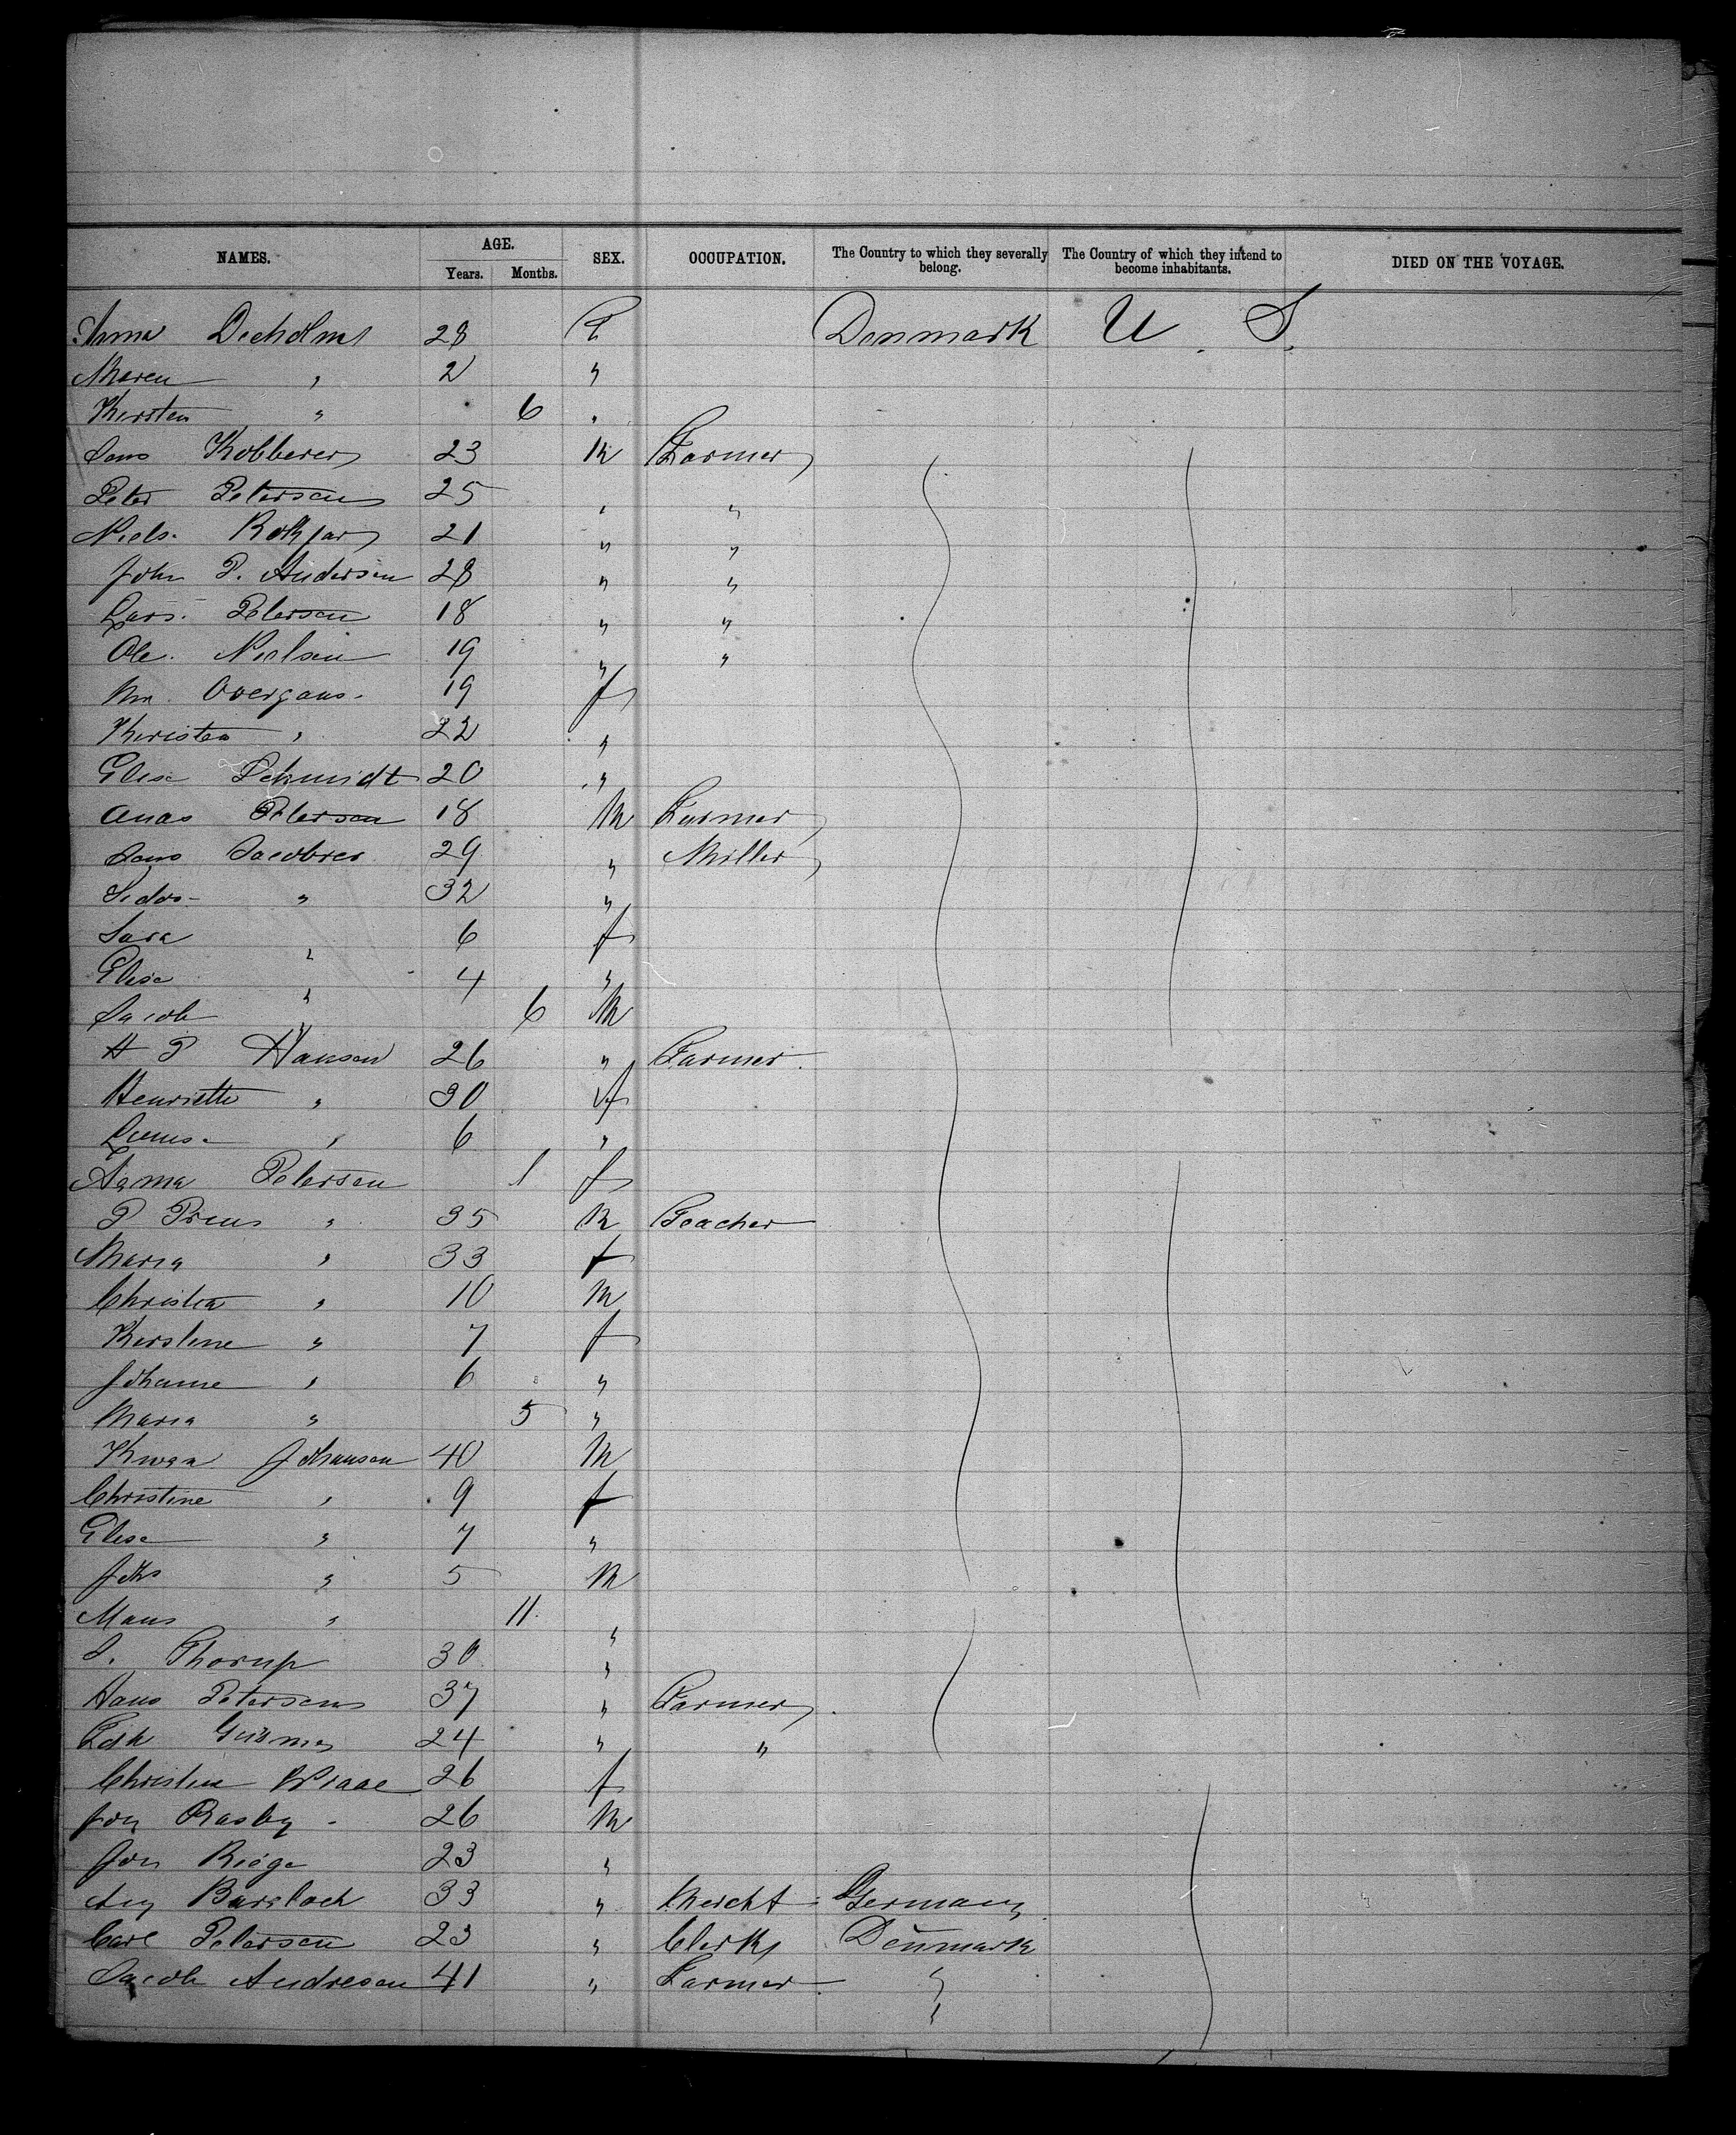 NAMES. AGE. Years. Months. SEX. OCCUPATION. The Country to which they severally belong. The Country of which they intend to become inhabitants. DIED ON THE VOYAGE.
Anna Decholm 28 F Denmark U. S.
Maren " 2 "
Kirsten " 6 "
Kobberer 23 M Farmer
Peter Petersen 25 " "
Niels 21 " "
John P. Andersen 28 " "
Lars Petersen 18 " "
Ole Nielsen 19 " "
Overgaus 19 f
Kiristen " 22 "
Elise Schmidt 20 "
Petersen 18 M Farmer
29 " Miller
" 32 "
Sara " 6 f
Elise " 4 "
Jacob " 6 M
H P Hansen 26 " Farmer
Henriette " 30 f
" 6 "
Petersen 1 f
P " 35 M Teacher
Maria " 33 f
Christia " 10 M
Kirstine " 7 f
Johanne " 6 "
Maria " 5 "
Johansen 40 M
Christine " 9 f
Elise " 7 "
" 5 M
Maus " 11 "
Thorup 30 "
Hans Petersen 37 " Farmer
24 " "
Christin 26 f
Rasby 26 M
23 "
33 " Mercht Germany
Carl Petersen 23 " Clerk Denmark
Jacob Andresen 41 " Farmer "